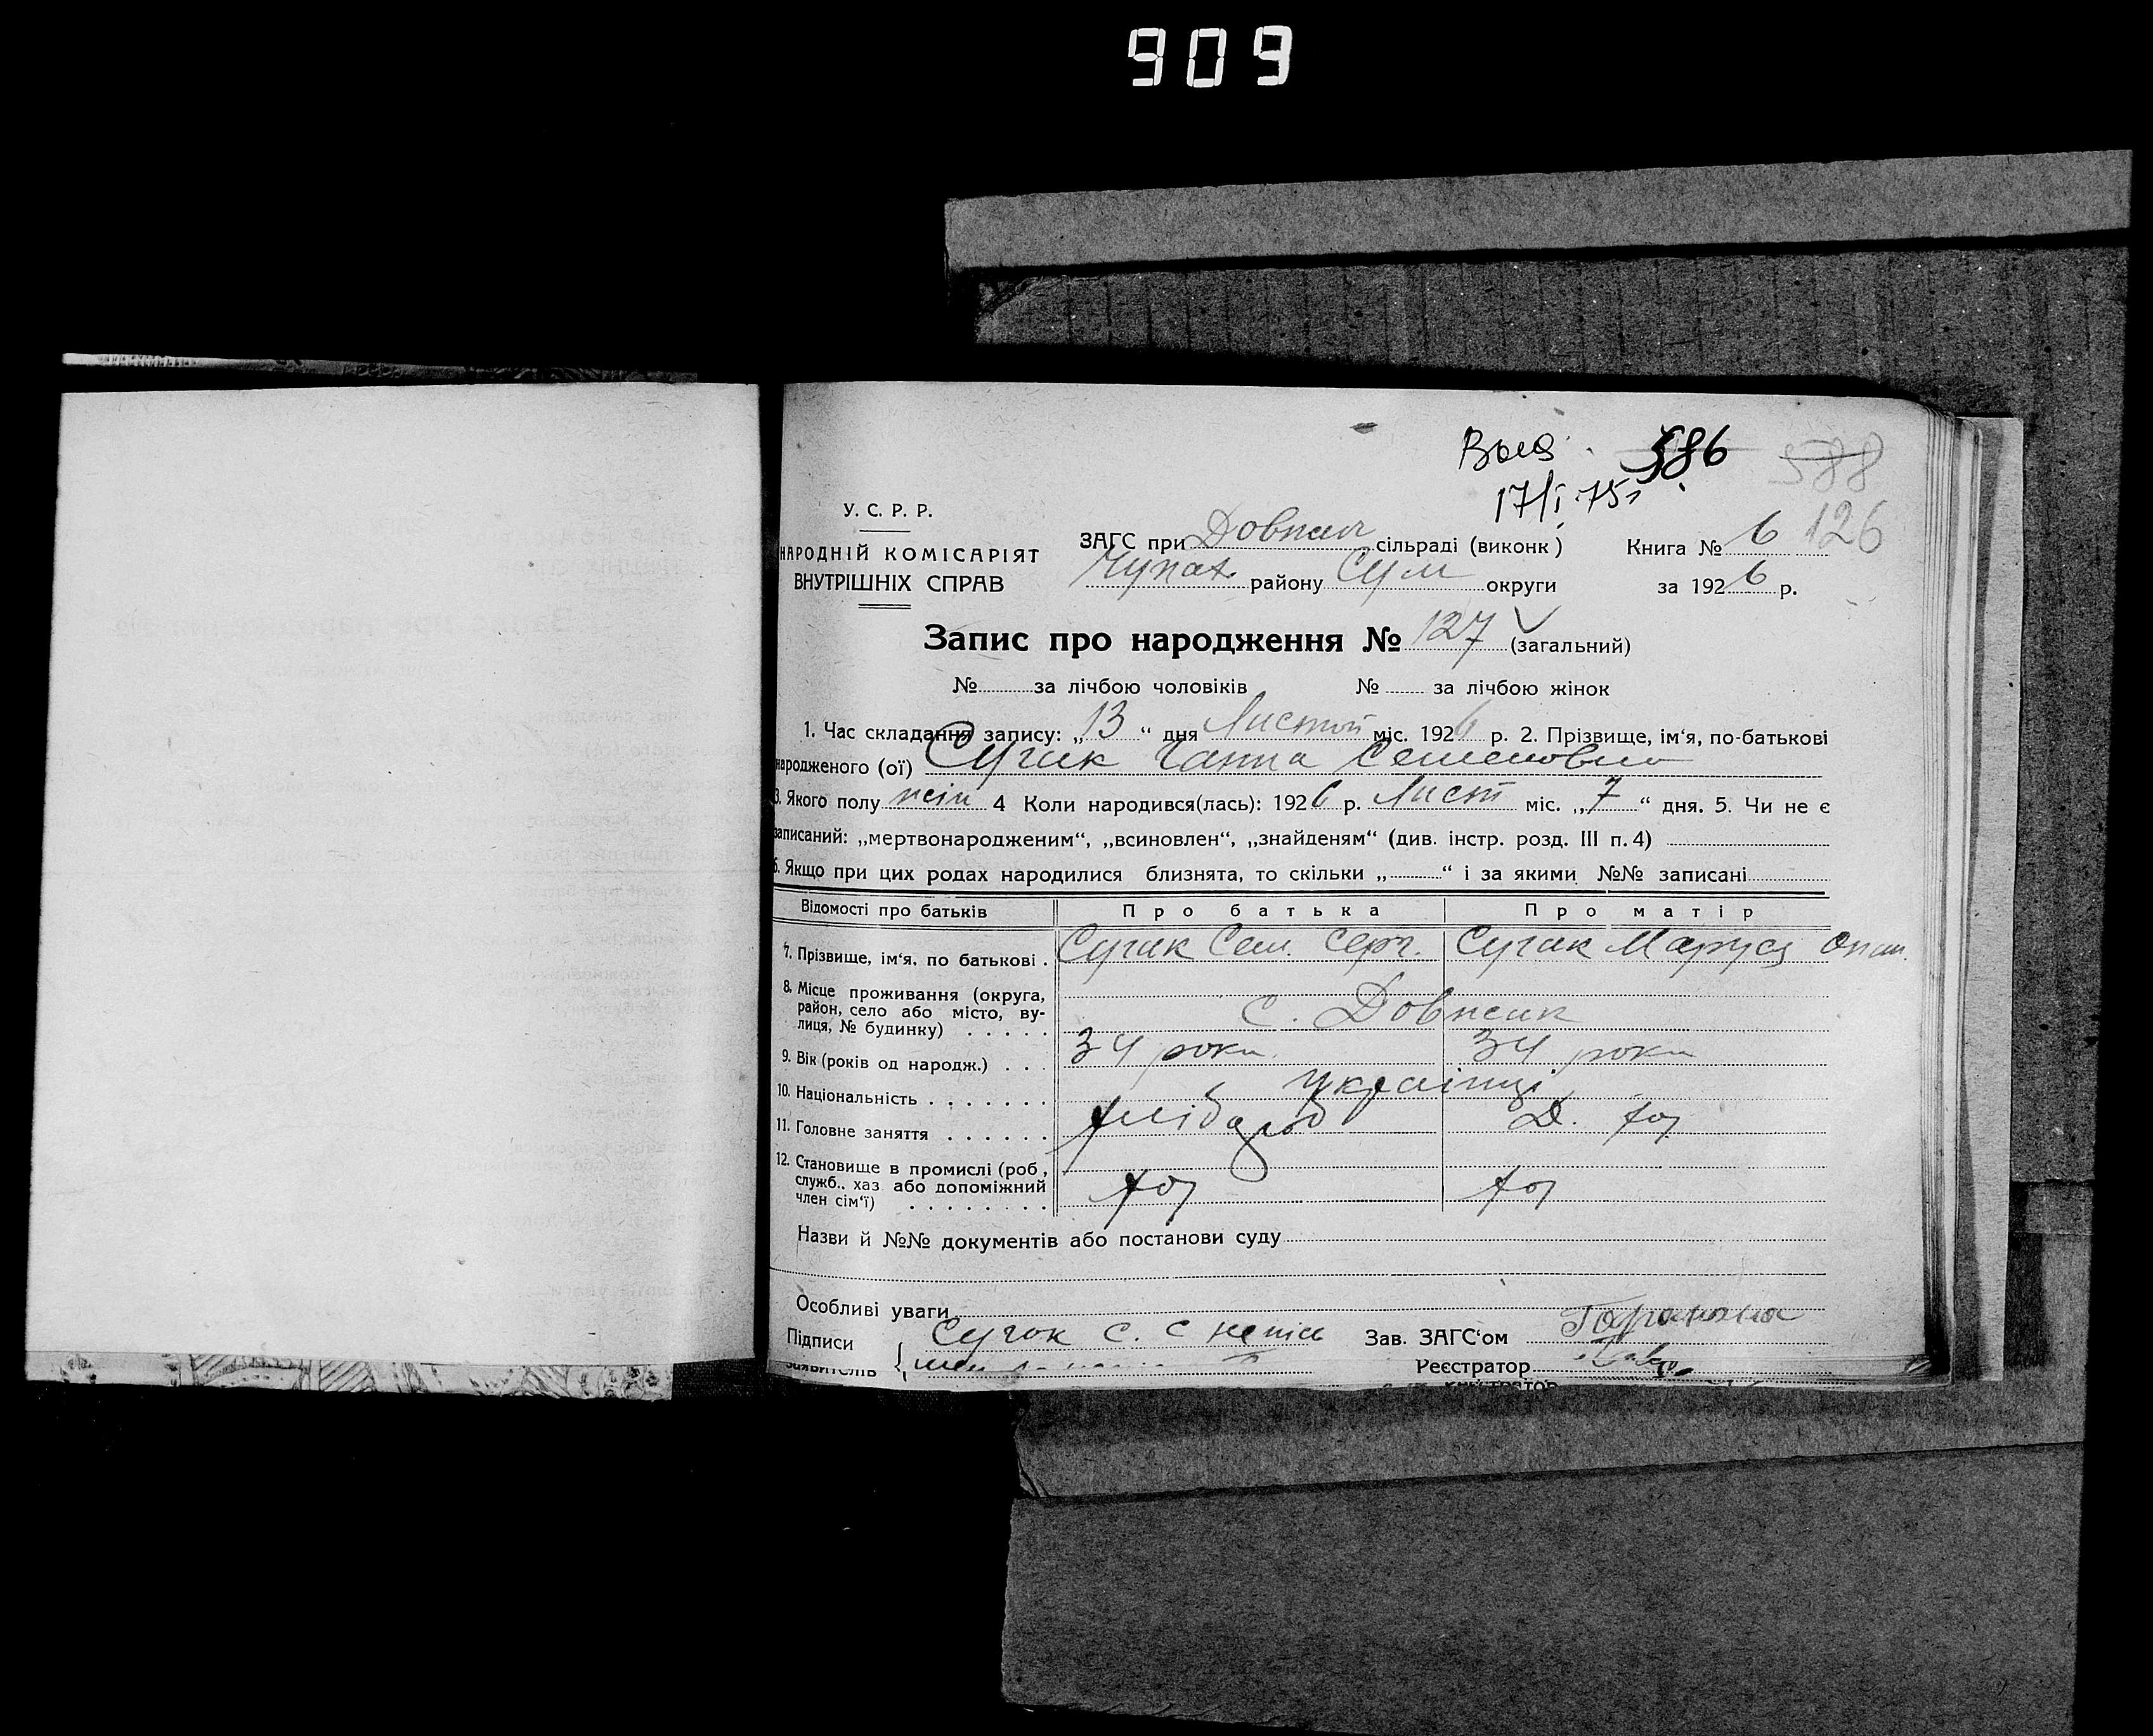 909
586
588
17/I 75г
126
У. С. Р. Р.
НАРОДНІЙ КОМІСАРІЯТ
ВНУТРІШНІХ СПРАВ
ЗАГС при Довжич сільраді (виконк) Книга № 6
Чупах району Сум округи за 1926 р.
Запис про народження № 127 (загальний)
№ за лічбою чоловіків № за лічбою жінок
1. Час складання запису: „13“ дня Листоп міс. 1926 р. 2. Прізвище, ім‘я, по-батькові
народженого (ої) Сугак Ганна Семеновна
3. Якого полу жін 4 Коли народився(лась): 1926 р. Лист міс. „7“ дня. 5. Чи не є
записаний: „мертвонародженим“, „всиновлен“, „знайденям“ (див. інстр. розд. III п. 4)
6. Якщо при цих родах народилися близнята, то скільки „ “ і за якими №№ записані
Відомості про батьків Про батька Про матір
7. Прізвище, ім‘я, по батькові . Сугак Сем. Серг. Сугак Маруся Опан.
8. Місце проживання (округа,
район, село або місто, ву-
лиця, № будинку) . . . . . с. Довжик
9. Вік (років од народж.) . . . 34 роки 34 роки
10. Національність . . . . . . . Українці
11. Головне заняття . . . . . . Хлібороб Д. Хоз
12. Становище в промислі (роб,
служб., хаз або допоміжний
член сім‘ї) . . . . . . . . Хоз Хоз
Назви й №№ документів або постанови суду
Особливі уваги
Підписи Сугак С. С Зав. ЗАГС‘ом
заявителів Реєстратор